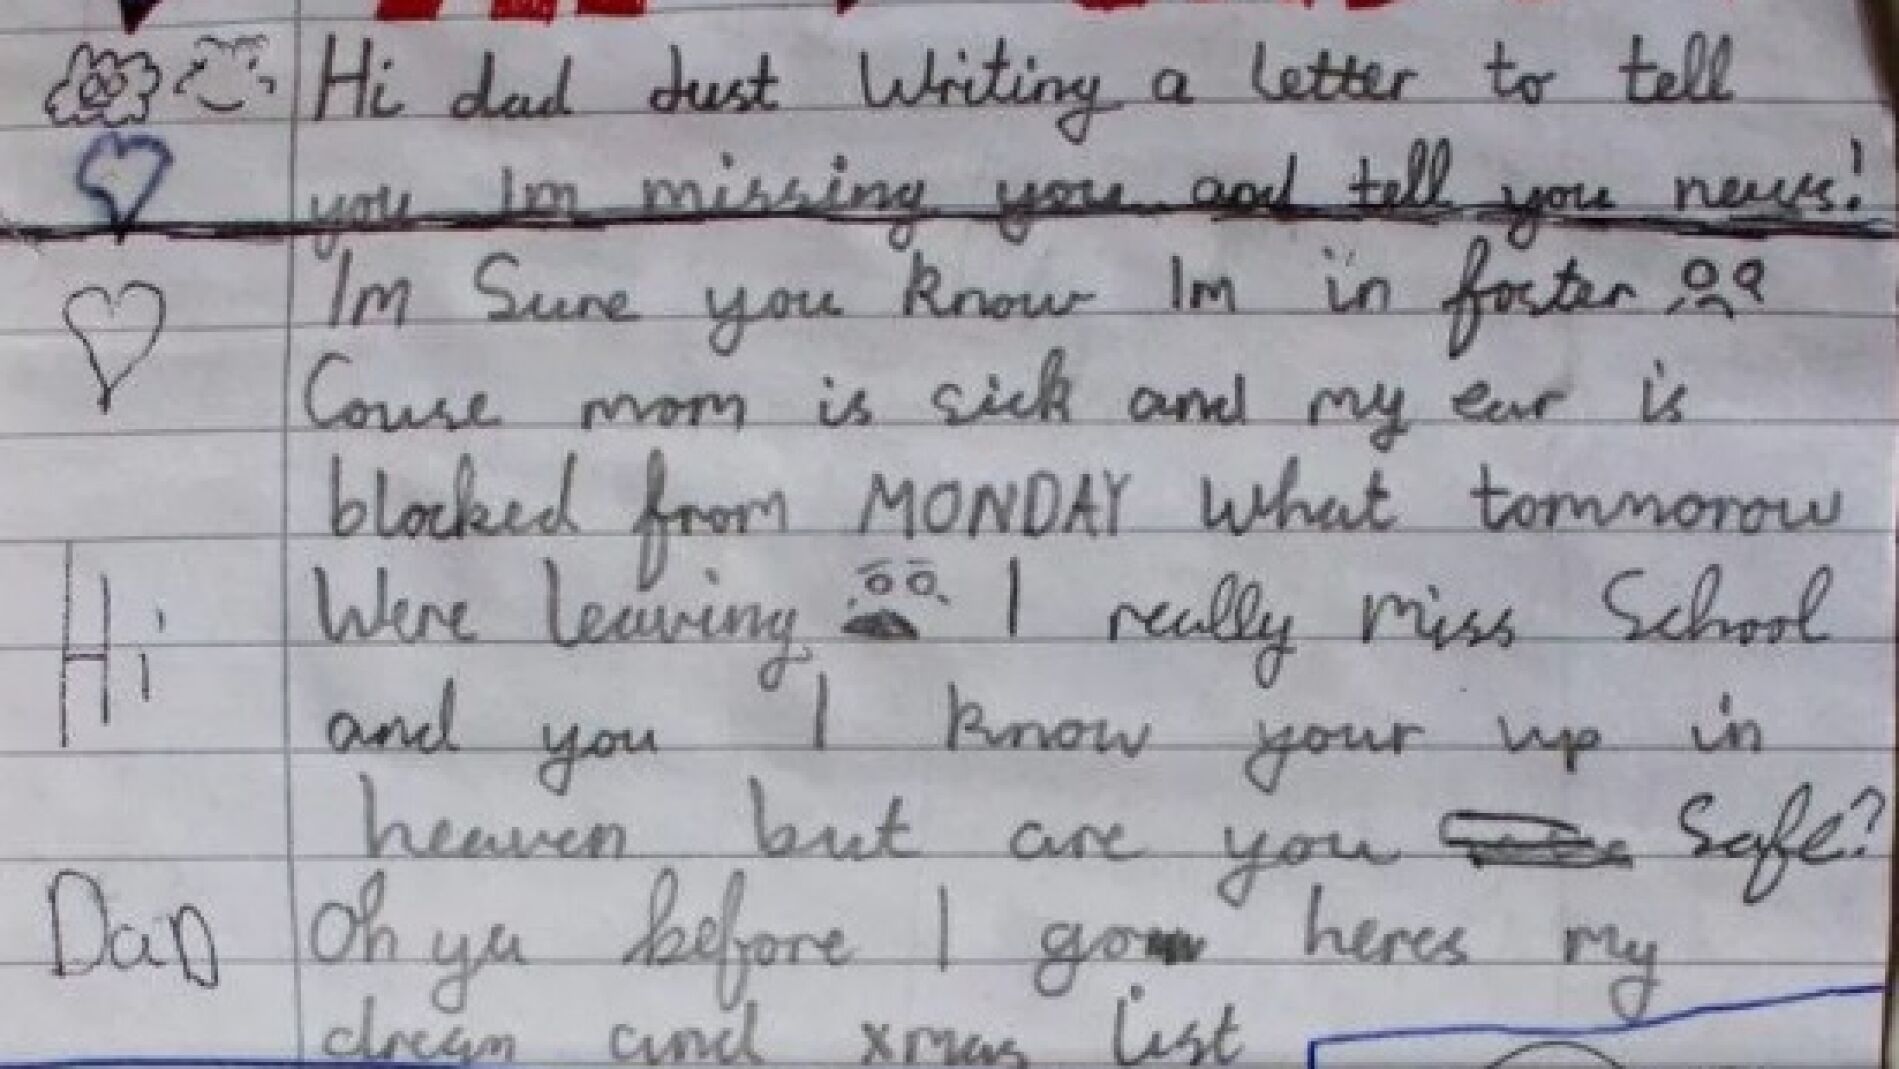 Hi dad Just Writing a letter to tell
you Im missing you and tell you news!
Im Sure you know Im in foster
Couse mom is sick and my ear is
blocked from MONDAY what tommorow
Were leaving I really miss School
and you I know your up in
heaven but are you Safe?
Oh ya before I go heres my
dream and xmas list
Hi
Dad